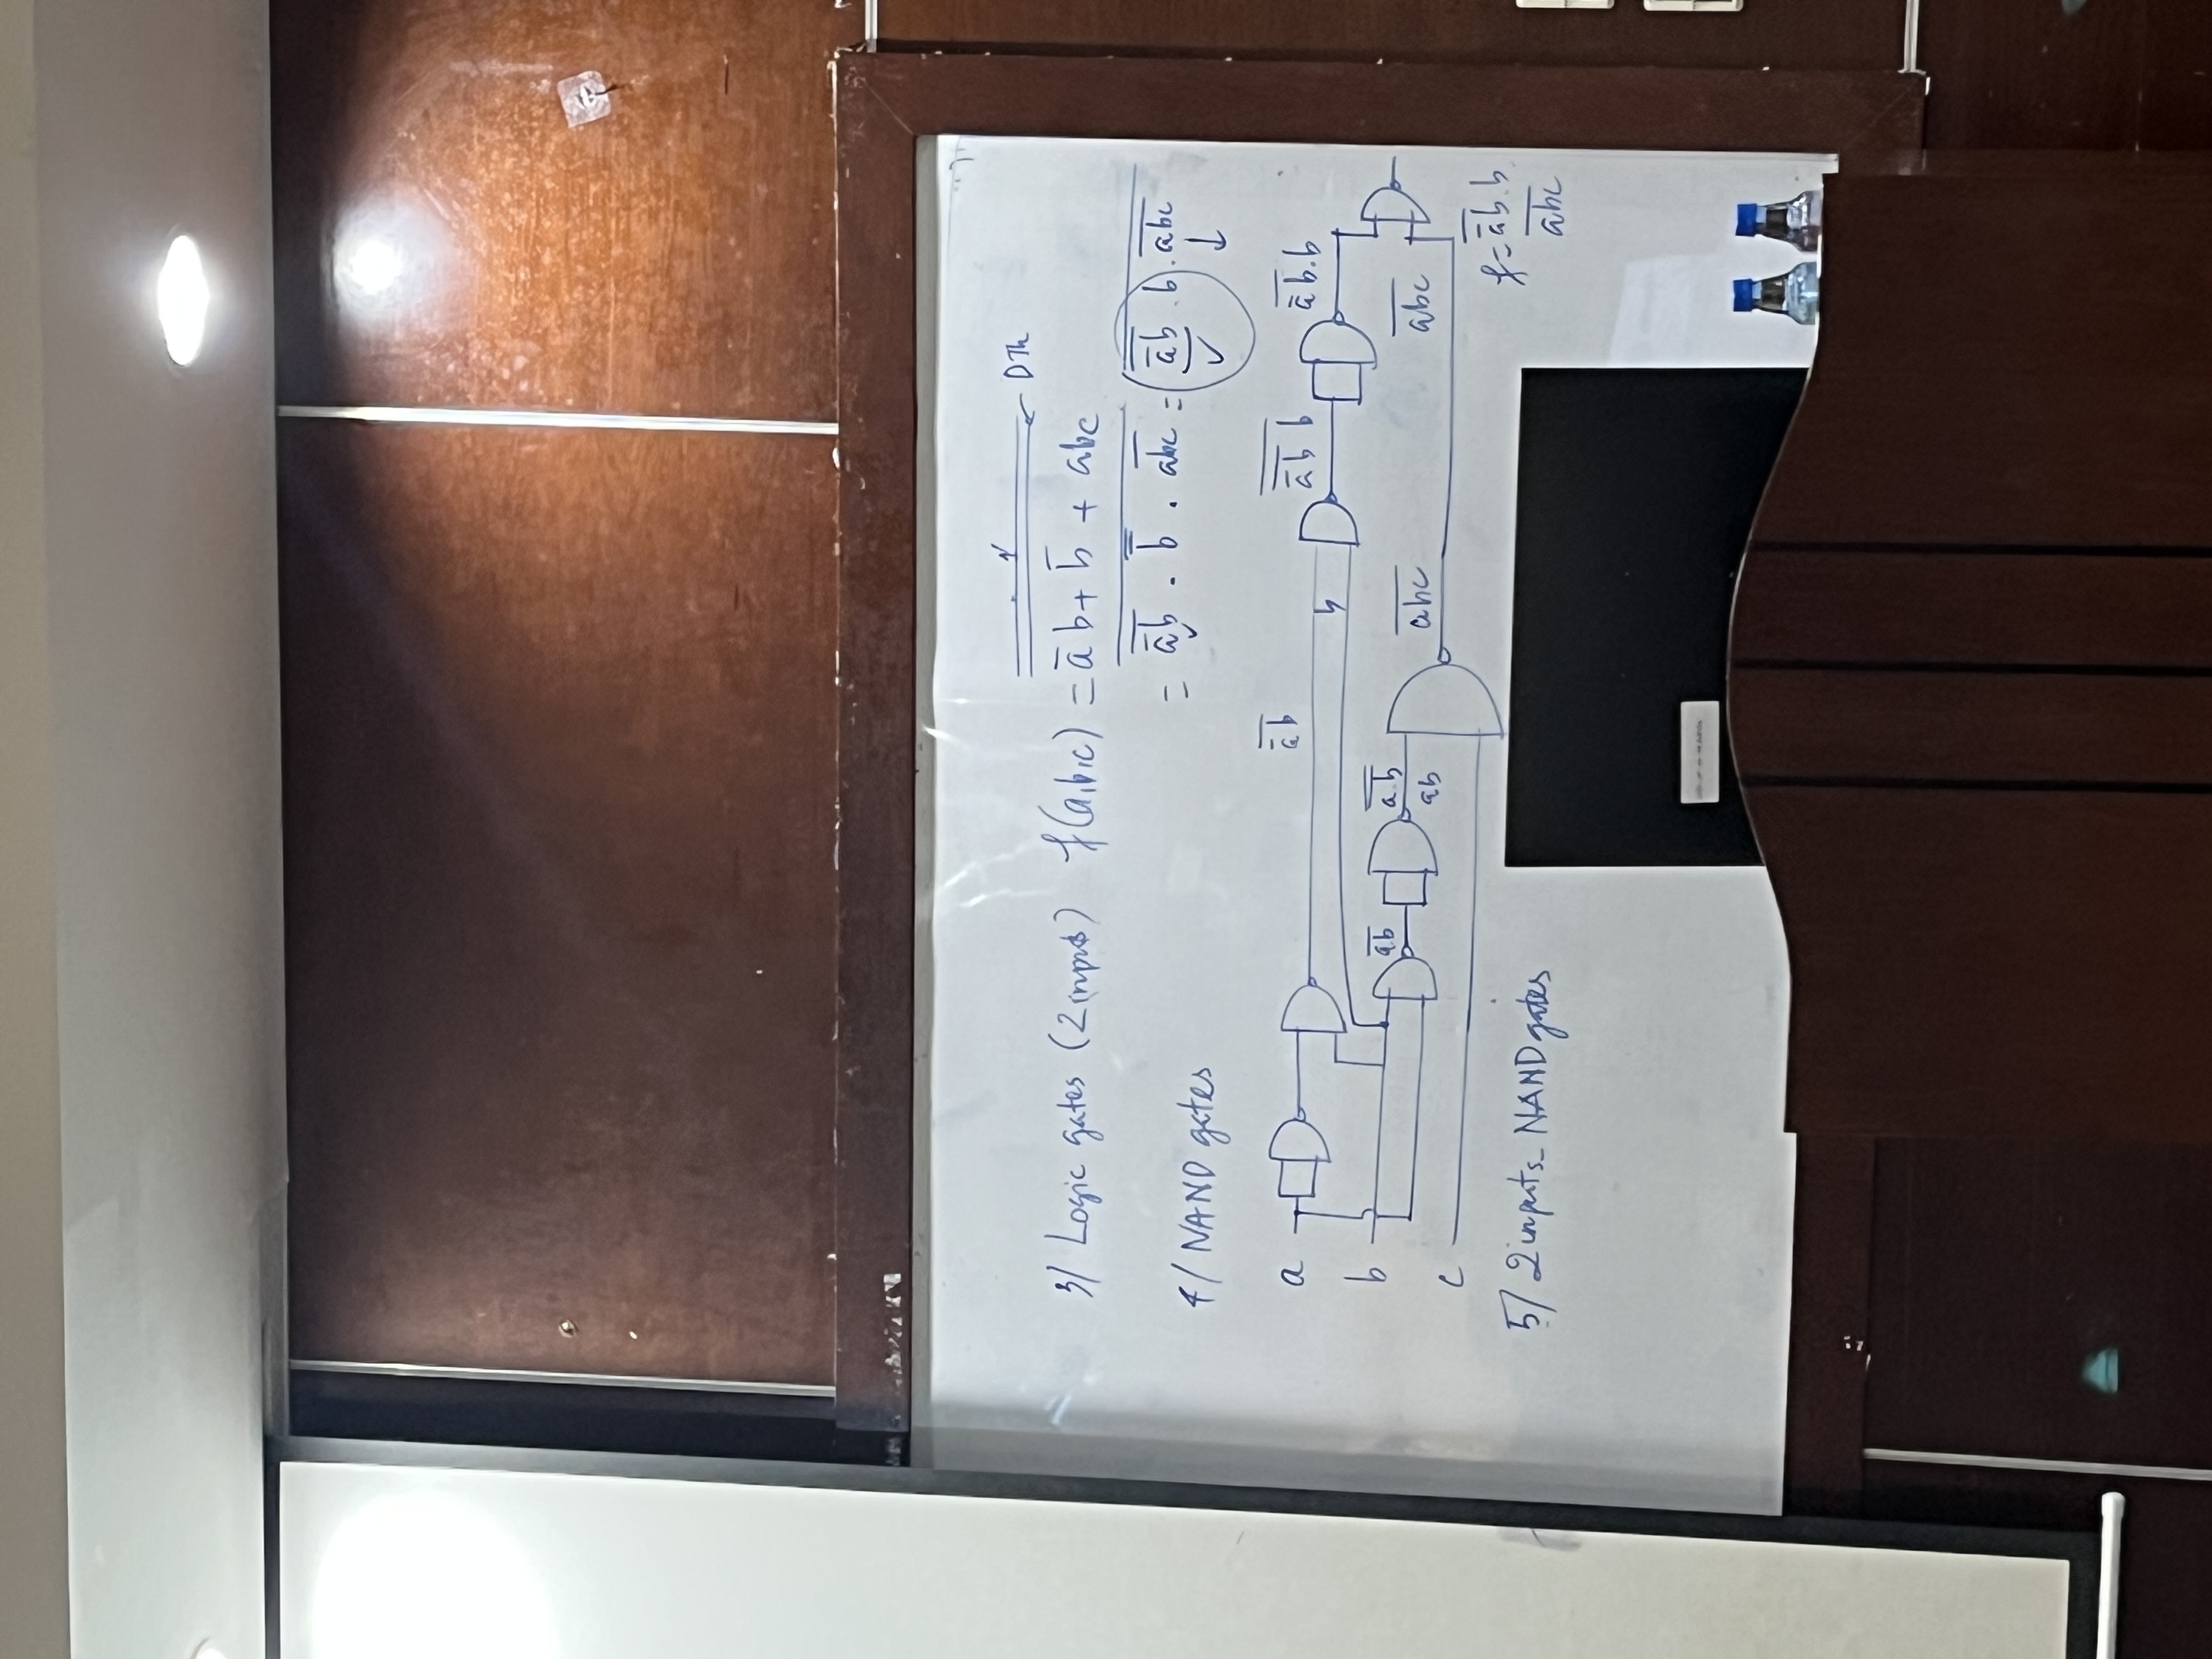 DTh
3/ Logic gates (2 inputs) f(a,b,c) = a̅ b + b̅ + abc
= \overline{a̅b} . \overline{b̅} . \overline{abc} = \overline{\overline{a̅b} . b . \overline{abc}}
4/ NAND gates
a \overline{a̅b} b \overline{\overline{a̅b} b} \overline{a̅b}.b
b \overline{ab} \overline{\overline{a.b}}
ab \overline{abc} \overline{abc}
c
f = \overline{a̅b}.b
\overline{abc}
5/ 2 inputs - NAND gates